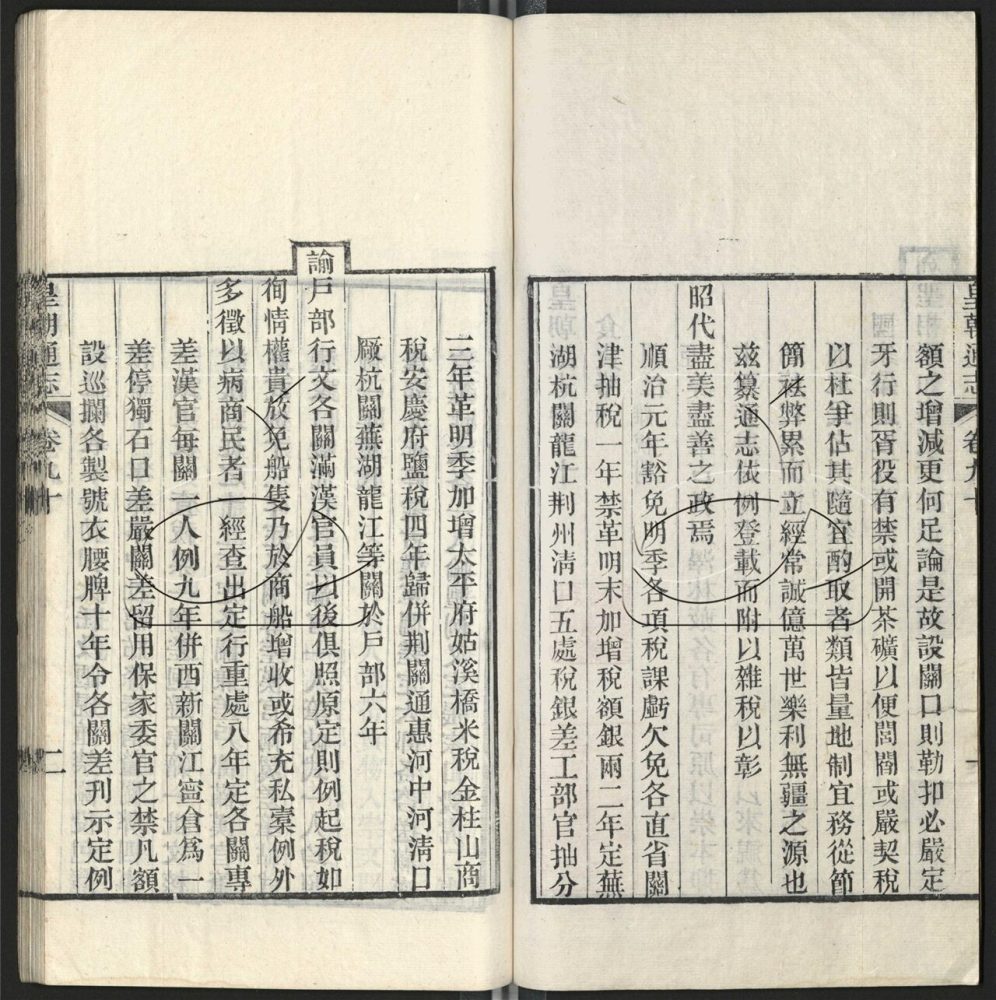 皇朝通志 卷九十 一
額之增減更何足論是故設關口則勒扣必嚴定
牙行則胥役有禁或開茶礦以便閭閻或嚴契稅
以杜爭佔其隨宜酌取者類皆量地制宜務從節
簡袪弊累而立經常誠億萬世樂利無疆之源也
茲纂通志依例登載而附以雜稅以彰
昭代盡美盡善之政焉
順治元年豁免明季各項稅課虧欠免各直省關
津抽稅一年禁革明末加增稅額銀兩二年定蕪
湖杭關龍江荆州清口五處稅銀差工部官抽分
三年革明季加增太平府姑溪橋米稅金柱山商
稅安慶府鹽稅四年歸併荆關通惠河中河清口
厰杭關蕪湖龍江等關於戶部六年
諭戶部行文各關滿漢官員以後俱照原定則例起稅如
徇情權貴放免船隻乃於商船增收或希充私橐例外
多徵以病商民者一經查出定行重處八年定各關專
差漢官每關一人例九年併西新關江寧倉爲一
差停獨石口差嚴關差留用保家委官之禁凡額
設巡攔各製號衣腰牌十年令各關差刋示定例
皇朝通志 卷九十 二